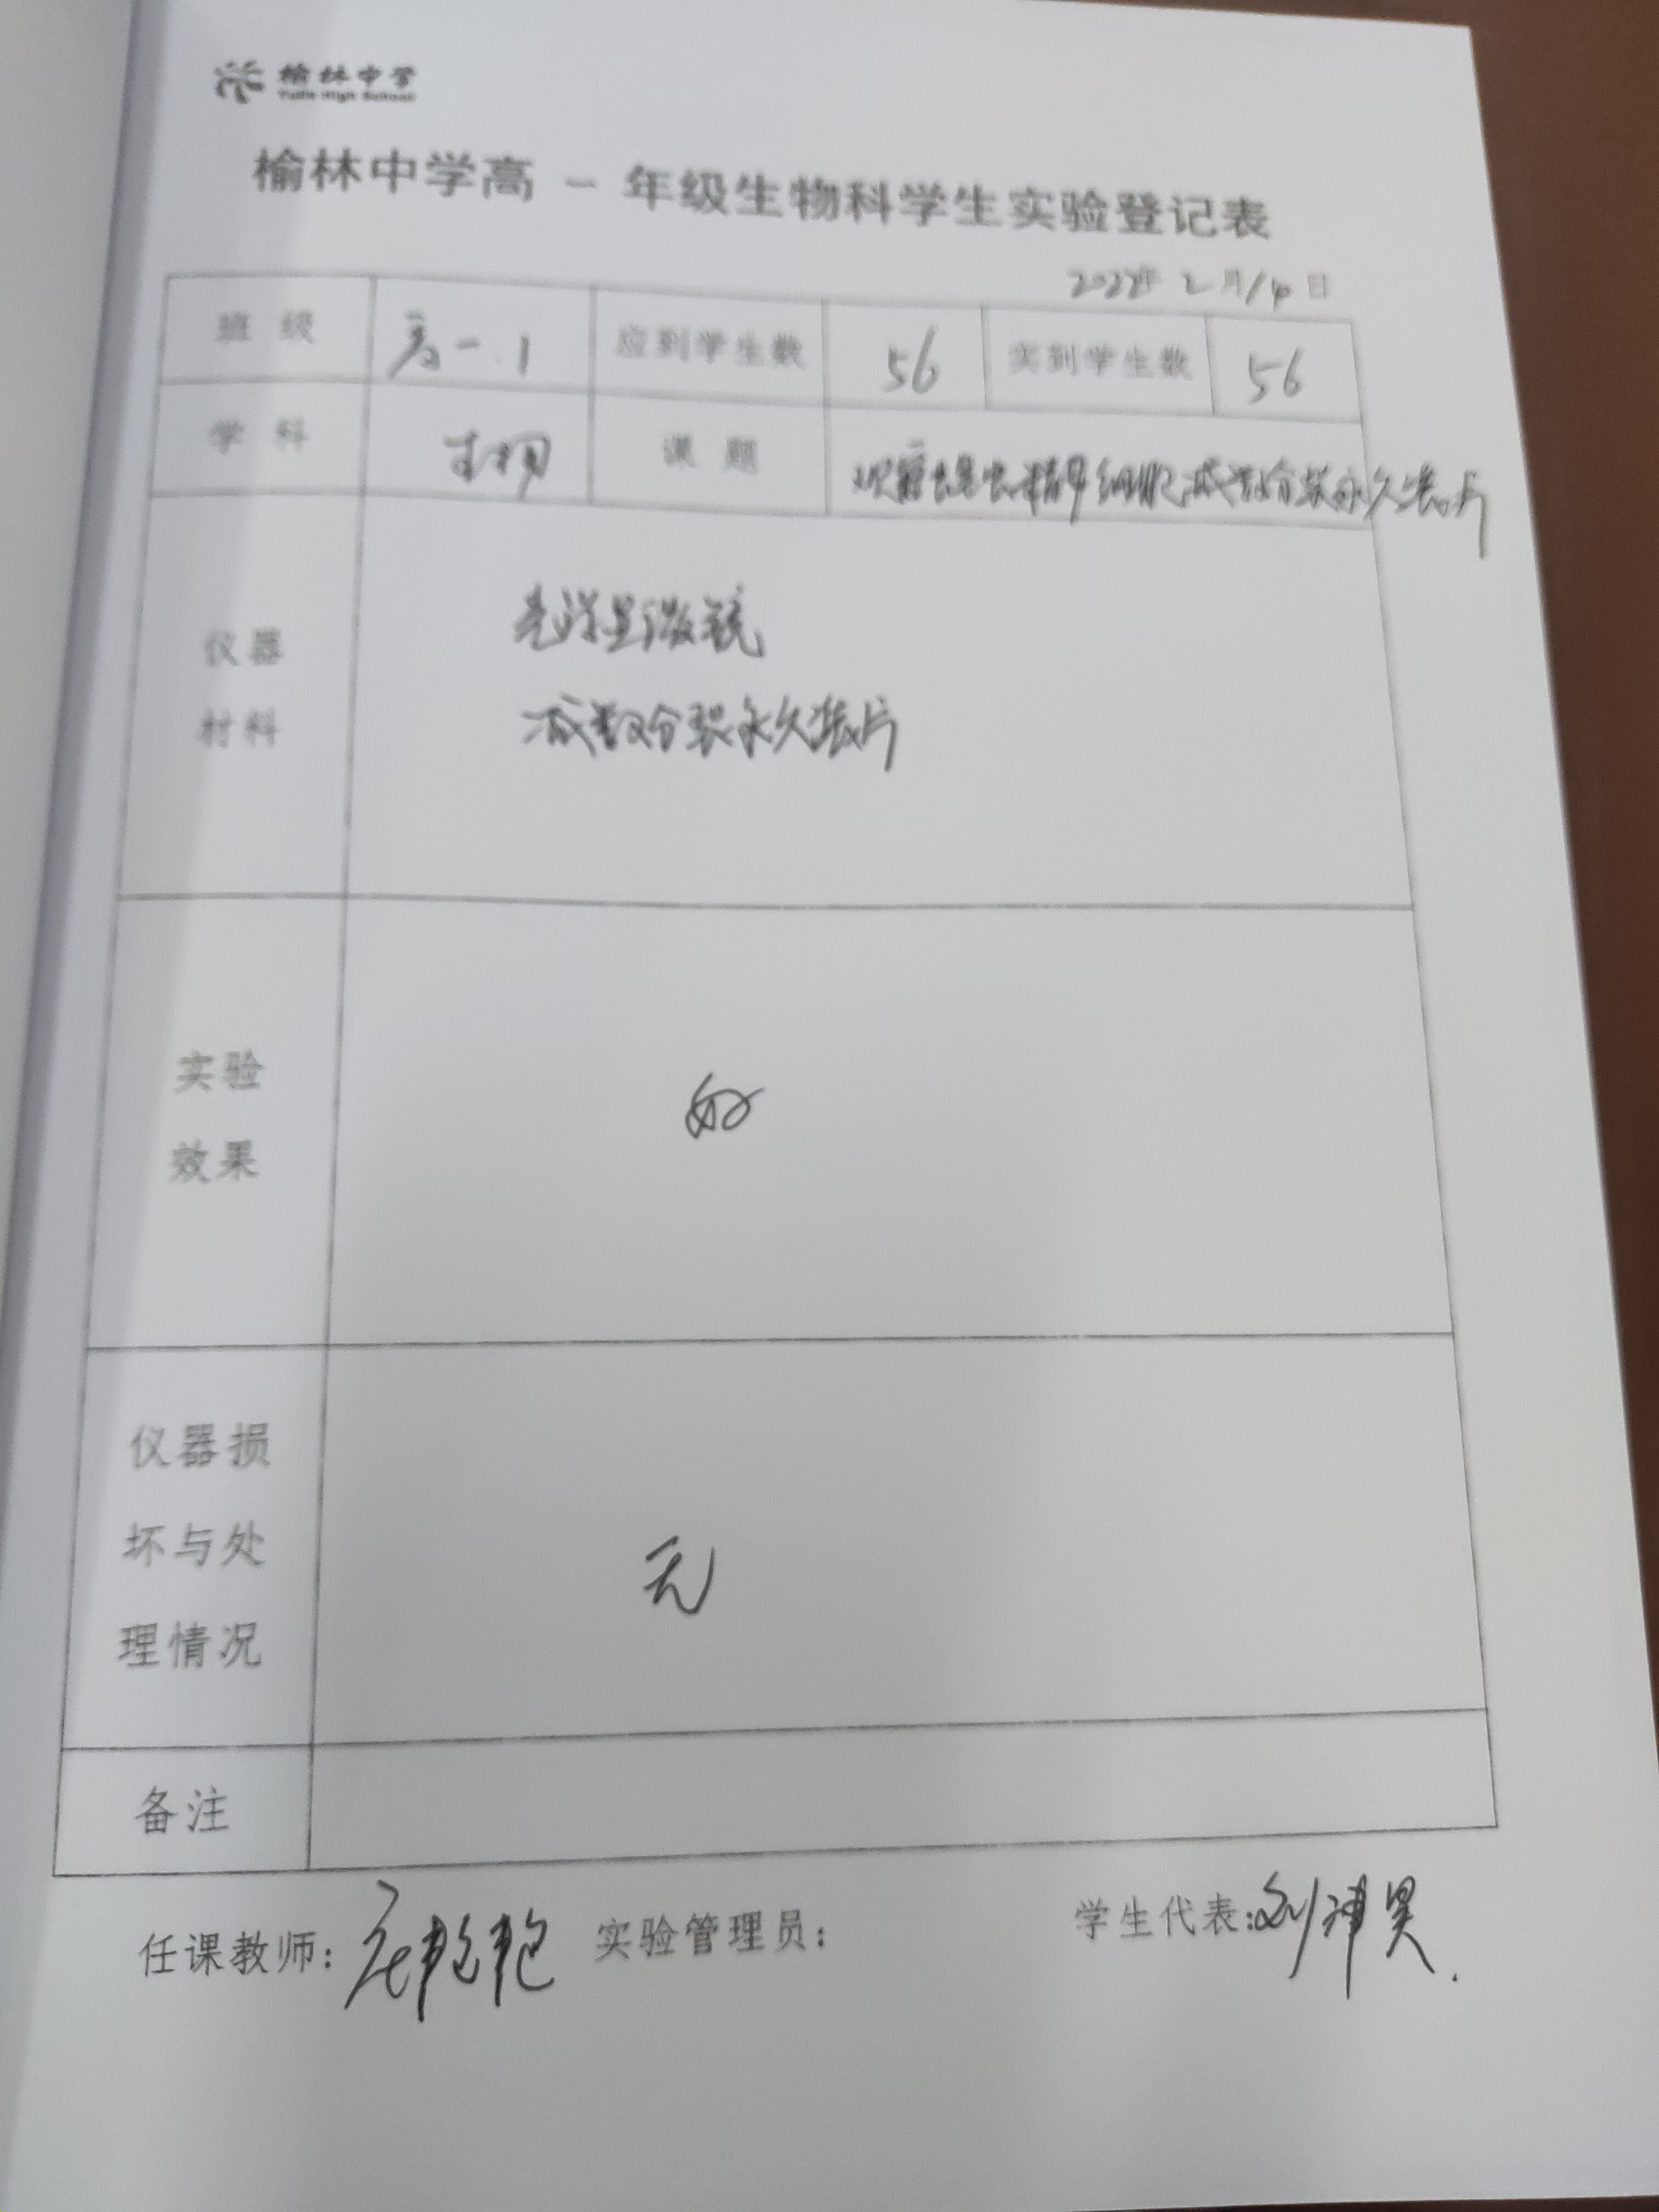 榆林中学
Yulin High School
榆林中学高 一 年级生物科学生实验登记表
2022年 2月14日
班 级 高一.1 应到学生数 56 实到学生数 56
学 科 生物 课 题 观察蝗虫精母细胞减数分裂永久装片
仪器
材料
光学显微镜
减数分裂永久装片
实验
效果
好
仪器损
坏与处
理情况
无
备注
任课教师: 实验管理员: 学生代表:刘 昊.